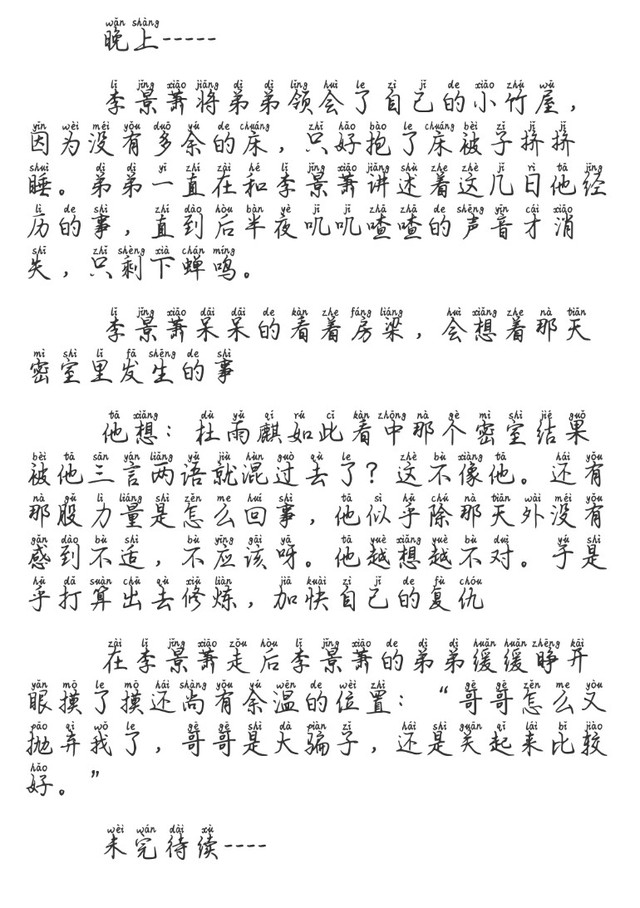 wǎn shàng
晚上-----
lǐ jǐng xiāo jiāng dì dì lǐng huì le zì jǐ de xiǎo zhú wū
李景萧将弟弟领会了自己的小竹屋，
yīn wèi méi yǒu duō yú de chuáng zhǐ hǎo bào le chuáng bèi zi jǐ jǐ
因为没有多余的床，只好抱了床被子挤挤
shuì dì dì yī zhí zài hé lǐ jǐng xiāo jiǎng shù zhe zhè jǐ rì tā jīng
睡。弟弟一直在和李景萧讲述着这几日他经
lì de shì zhí dào hòu bàn yè jī jī zhā zhā de shēng yīn cái xiāo
历的事，直到后半夜叽叽喳喳的声音才消
shī zhǐ shèng xià chán míng
失，只剩下蝉鸣。
lǐ jǐng xiāo dāi dāi de kàn zhe fáng liáng huì xiǎng zhe nà tiān
李景萧呆呆的看着房梁，会想着那天
mì shì lǐ fā shēng de shì
密室里发生的事
tā xiǎng dù yǔ qí rú cǐ kàn zhòng nà gè mì shì jié guǒ
他想：杜雨麒如此看中那个密室结果
bèi tā sān yán liǎng yǔ jiù hùn guò qù le zhè bù xiàng tā hái yǒu
被他三言两语就混过去了？这不像他。还有
nà gǔ lì liàng shì zěn me huí shì tā sì hū chú nà tiān wài méi yǒu
那股力量是怎么回事，他似乎除那天外没有
gǎn dào bù shì bù yīng gāi yā tā yuè xiǎng yuè bù duì yú shì
感到不适，不应该呀。他越想越不对。于是
hū dǎ suàn chū qù xiū liàn jiā kuài zì jǐ de fù chóu
乎打算出去修炼，加快自己的复仇
zài lǐ jǐng xiāo zǒu hòu lǐ jǐng xiāo de dì dì huǎn huǎn zhēng kāi
在李景萧走后李景萧的弟弟缓缓睁开
yǎn mō le mō hái shàng yǒu yú wēn de wèi zhi gē gē zěn me yòu
眼摸了摸还尚有余温的位置：“哥哥怎么又
pāo qì wǒ le gē gē shì dà piàn zi hái shì guān qǐ lái bǐ jiào
抛弃我了，哥哥是大骗子，还是关起来比较
hǎo
好。”
wèi wán dài xù
未完待续----